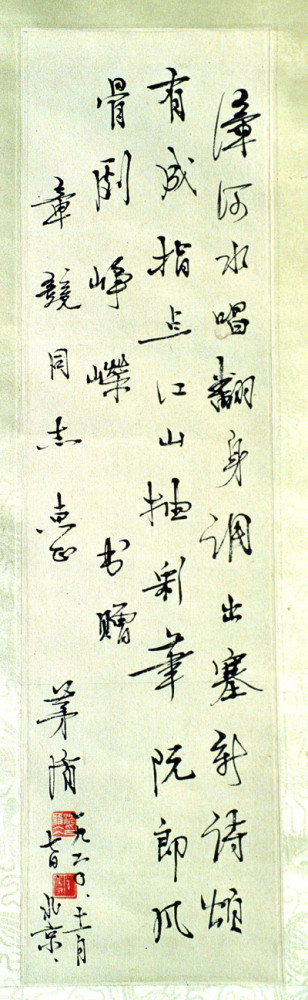 漳河水唱翻身调出塞新詩頌
有成指点江山抽彩筆阮郎风
骨剧峥嵘 书赠
章競同志惠正 茅盾
一九六〇、十一月
七日 北京、